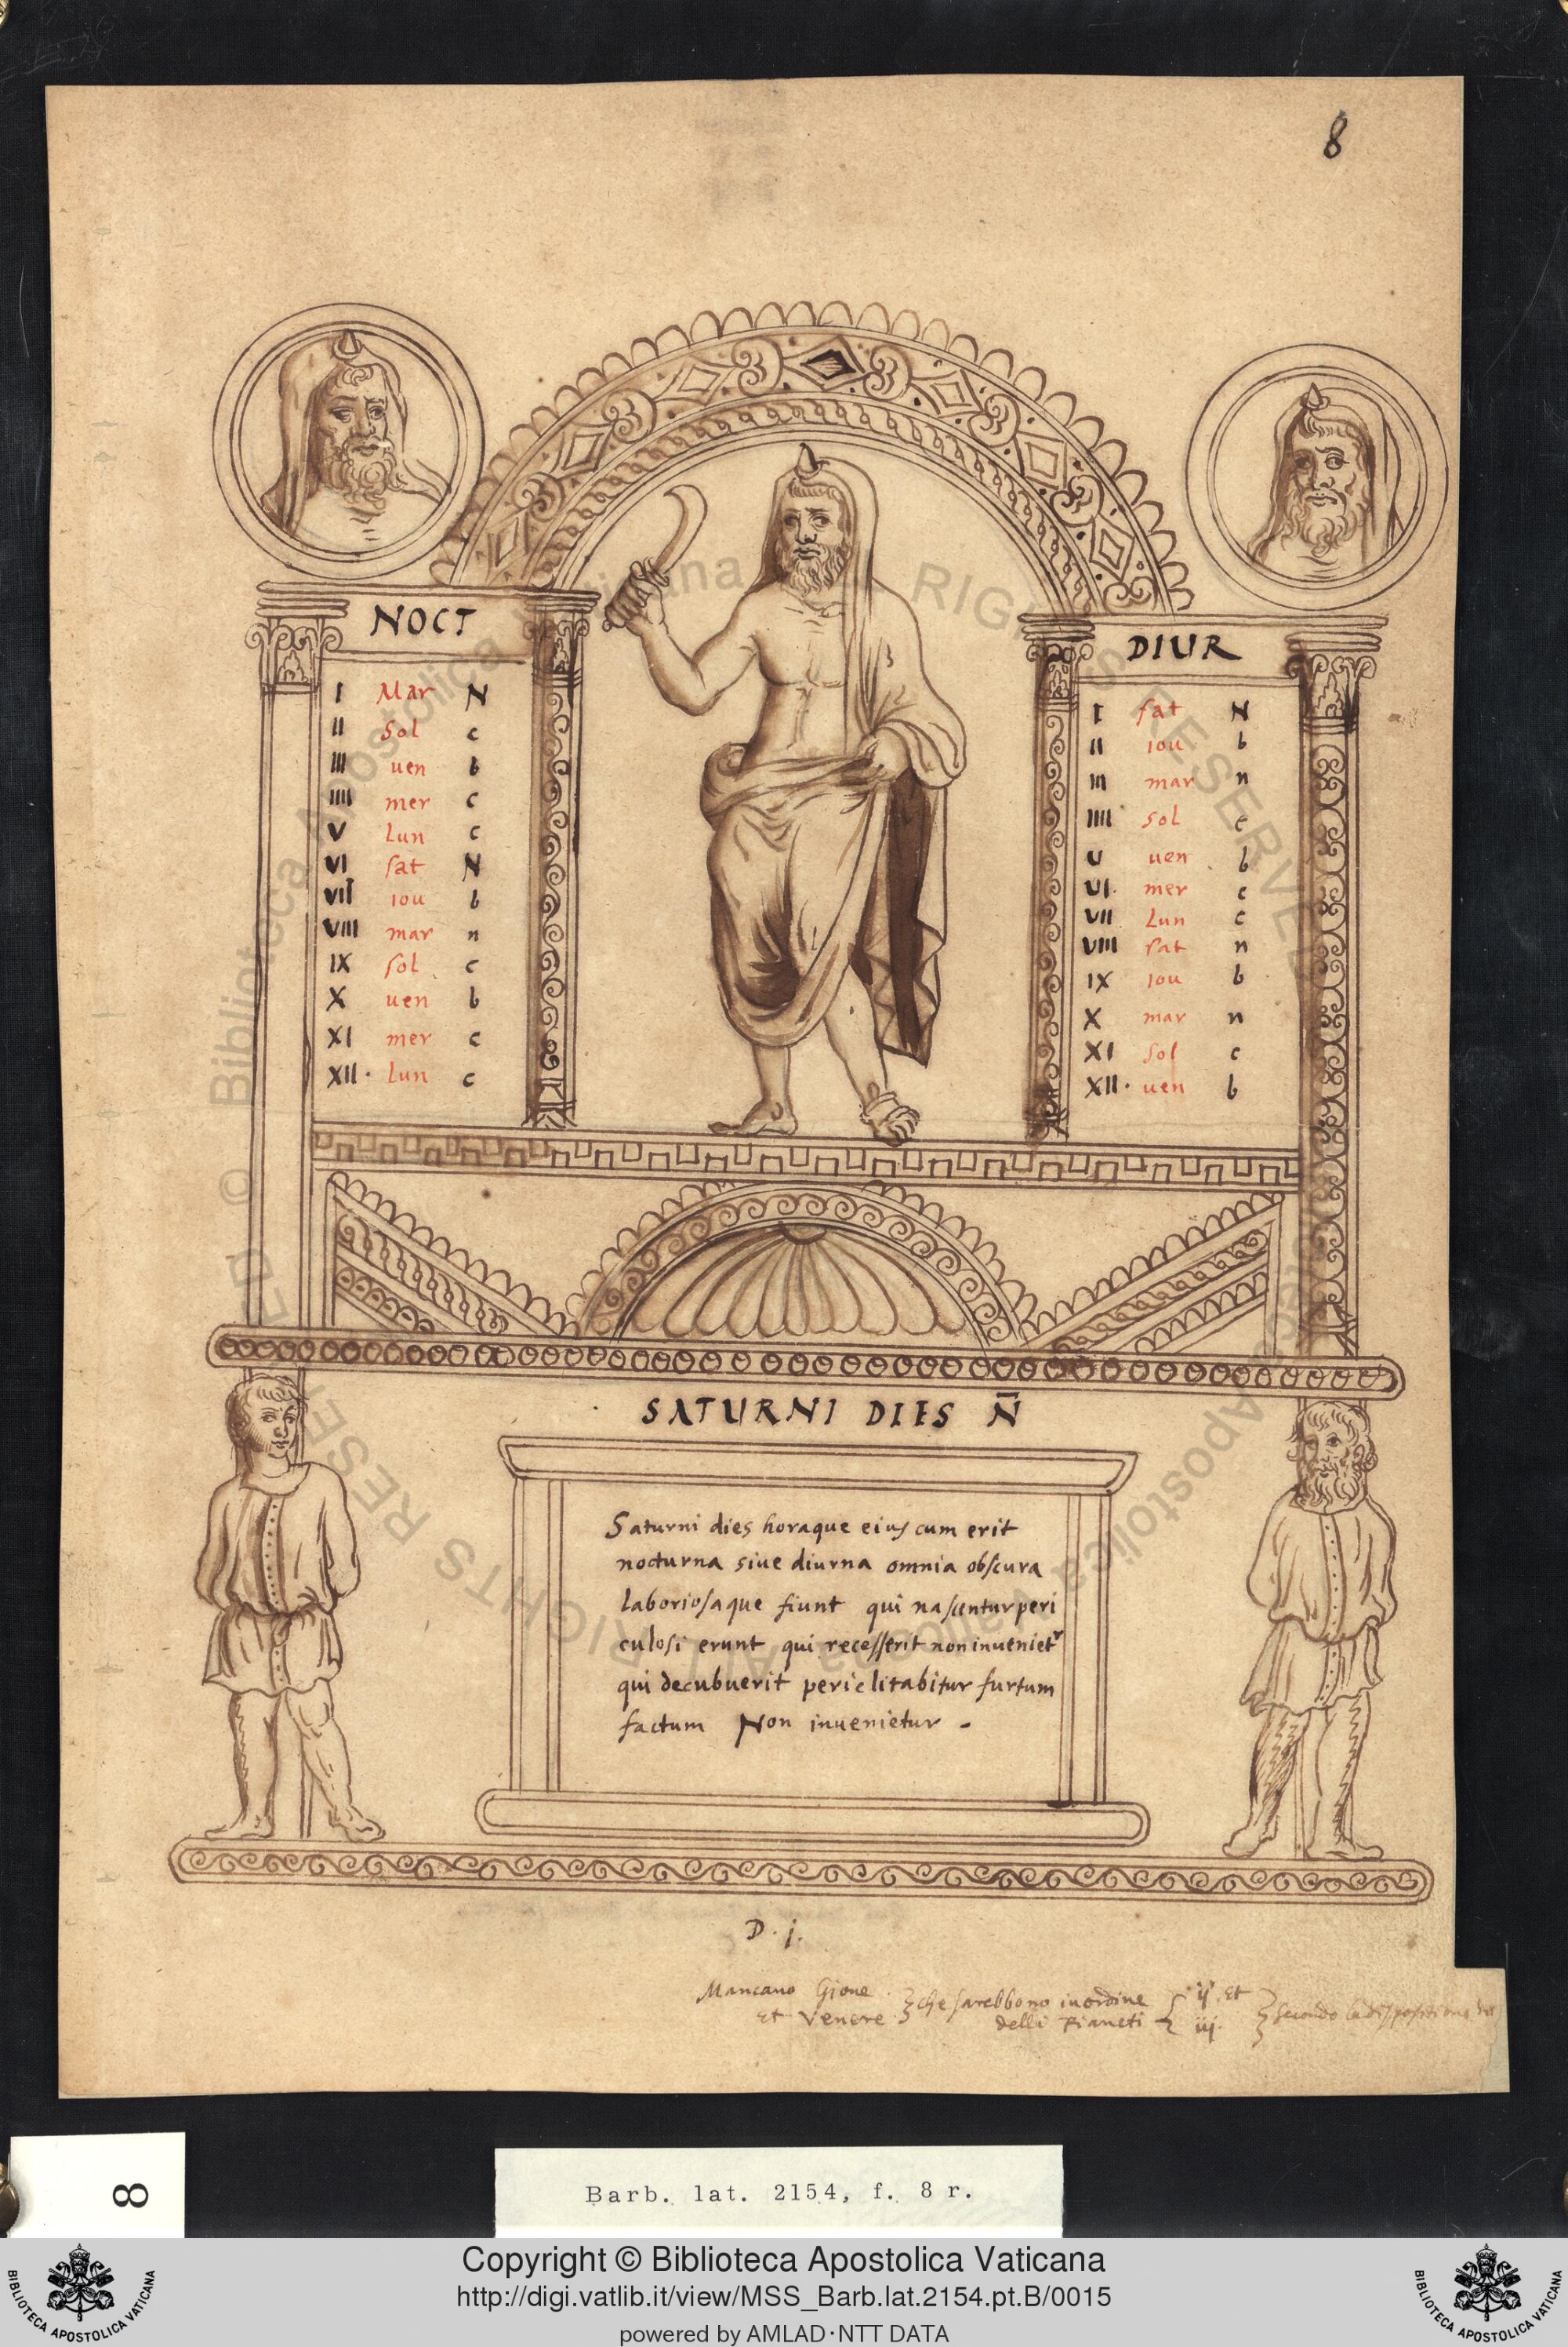 8
NOCT
I Mar N
II Sol c
III uen b
IIII mer c
V Lun c
VI sat N
VII iou b
VIII mar n
IX sol c
X uen b
XI mer c
XII · Lun c
DIUR
I sat N
II iou b
III mar n
IIII sol c
U uen b
VI mer c
VII Lun c
VIII sat n
IX iou b
X mar n
XI sol c
XII · uen b
SATURNI DIES N̄
Saturni dies horaque eius cum erit
nocturna siue diurna omnia obscura
laboriosaque fiunt qui nascuntur peri
culosi erunt qui recesserit non inueniet^r
qui decubuerit periclitabitur furtum
factum Non inuenietur -
D . j.
Mancano Gioue } che sarebbono in ordine { ij et } secondo la dispositione
et Venere delli Pianeti iij.
8
Barb. lat. 2154, f. 8 r.
© Biblioteca Apostolica Vaticana ALL RIGHTS RESERVED
Copyright © Biblioteca Apostolica Vaticana
http://digi.vatlib.it/view/MSS_Barb.lat.2154.pt.B/0015
powered by AMLAD·NTT DATA
BIBLIOTECA APOSTOLICA VATICANA
BIBLIOTECA APOSTOLICA VATICANA